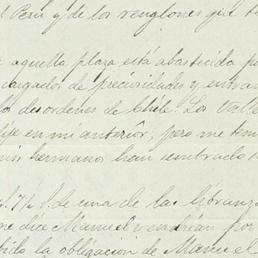 l Perú y de los renglones que t
aquella plaza está abastecida p
cargados de preciosidades y, entran
os desordenes de Chile. La Valle
ije en mi anterior; pero me tem
mis hermanos han sembrado
l. 7½ S. de una de las libranz
me dice Manuel vendrían por
bido la obligación de Manuel